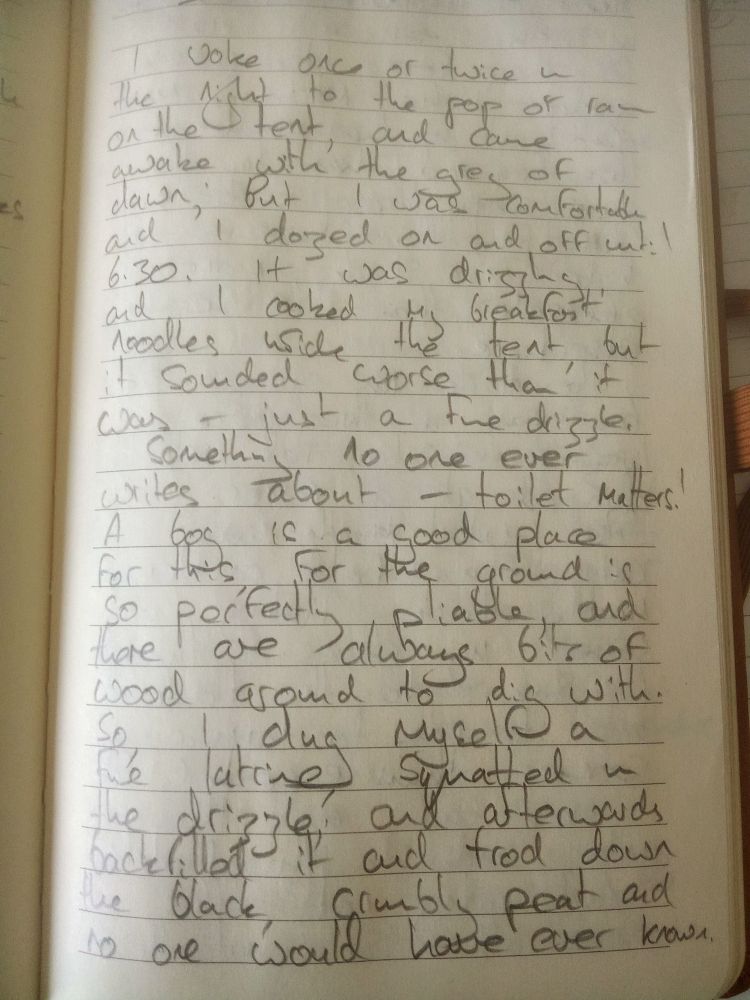 I woke once or twice in
the night to the pop of rain
on the tent, and came
awake with the grey of
dawn; but I was comfortable
and I dozed on and off until
6.30. It was drizzling,
and I cooked my breakfast
noodles inside the tent but
it sounded worse than it
was – just a fine drizzle.
Something no one ever
writes about – toilet matters!
A bog is a good place
for this, for the ground is
so perfectly pliable, and
there are always bits of
wood around to dig with.
So, I dug myself a
fine latrine, squatted in
the drizzle, and afterwards
backfilled it and trod down
the black, crumbly peat and
no one would have ever known.